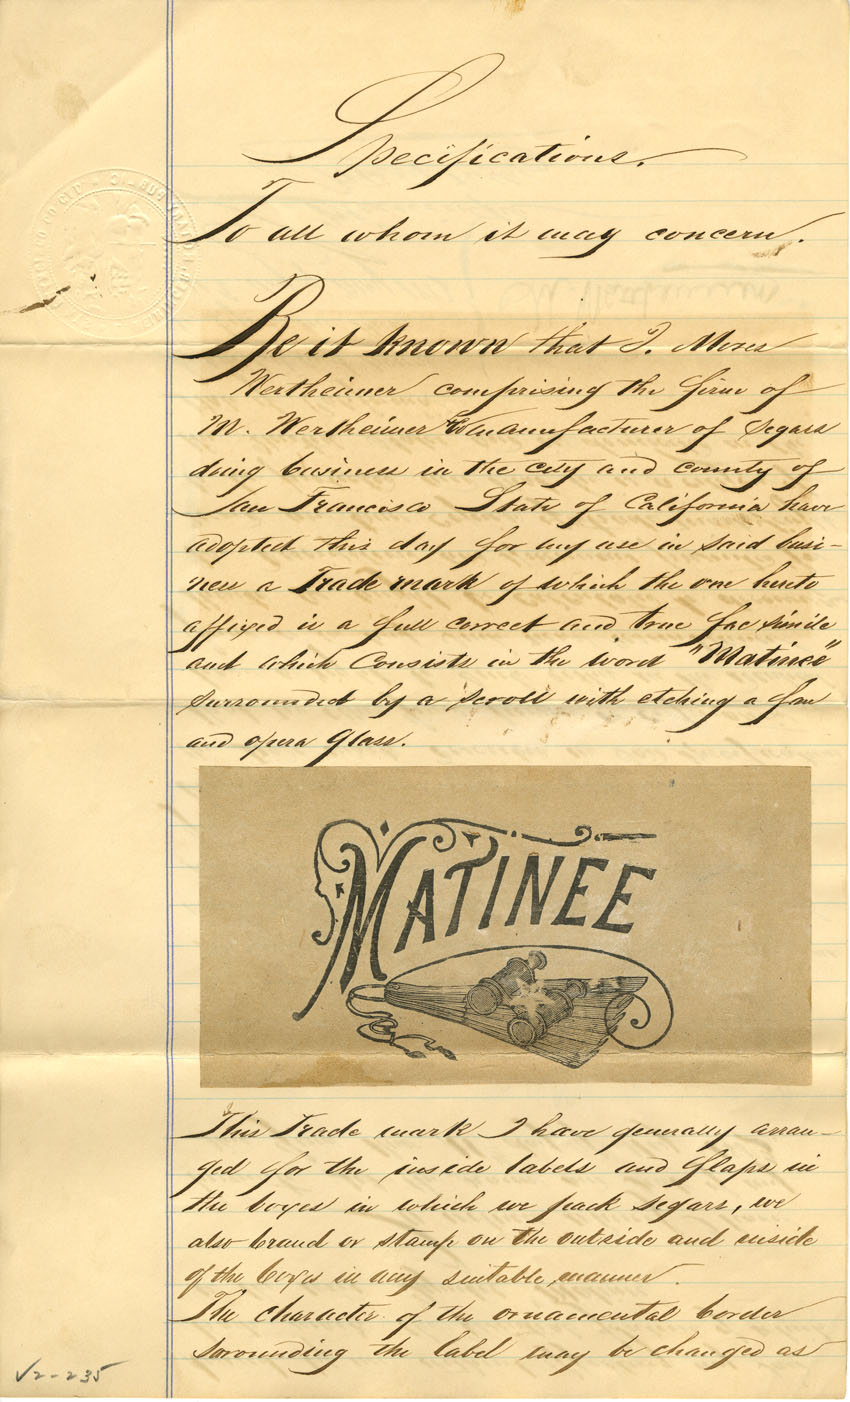 Specifications.
To all whom it may concern.
Be it known that I. Moses
Wertheimer comprising the firm of
M. Wertheimer & Co manufacturer of segars
doing business in the city and county of
San Francisco State of California have
adopted this day for my use in said busi-
ness a Trade mark of which the one hereto
affixed is a full correct and true fac simile
and which Consists in the word "Matinee"
surrounded by a scroll with etching a fan
and opera Glass.
MATINEE
This Trade mark I have generally arran-
ged for the inside labels and flaps in
the boxes in which we pack segars, we
also brand or stamp on the outside and inside
of the boxes in any suitable manner.
The character of the ornamental border
sorrounding the label may be changed as
√2-235